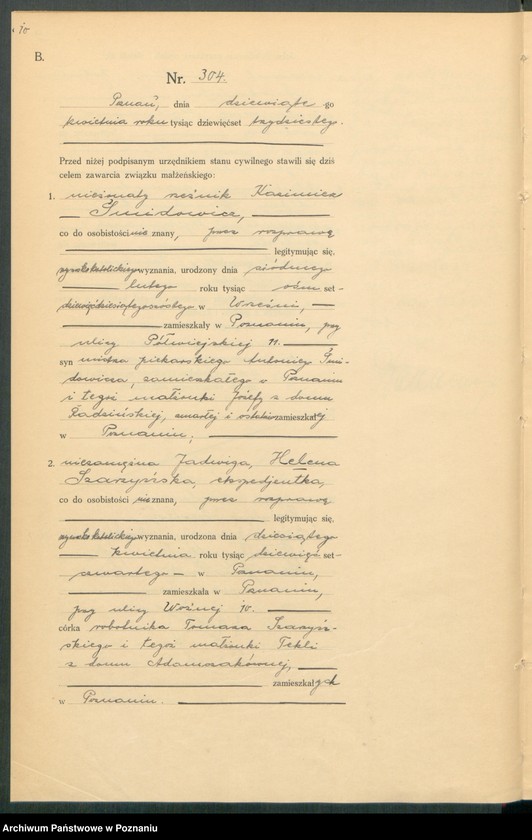 10
B.
Nr. 304.
Poznań, dnia dziewiąte go
kwietnia roku tysiąc dziewięćset trzydziestego.
Przed niżej podpisanym urzędnikiem stanu cywilnego stawili się dziś
celem zawarcia związku małżeńskiego:
1. nieżonaty rzeźnik Kazimierz
Śmidowicz,
co do osobistości nie znany, przez rozprawę
legitymując się,
rzymskokatolickiego wyznania, urodzony dnia siódmego
lutego roku tysiąc ośm set-
dziewięćdziesiątego ósmego w Wrześni,
zamieszkały w Poznaniu, przy
ulicy Półwiejskiej 11.
syn mistrza piekarskiego Antoniego Śmi-
dowicza, zamieszkałego w Poznaniu
i tegoż małżonki Józefy z domu
Radzińskiej, zmarłej i ostatnio zamieszkałej
w Poznaniu;
2. niezamężna Jadwiga, Helena
Szarzyńska, ekspedjentka,
co do osobistości nie znana, przez rozprawę
legitymując się,
rzymskokatolickiego wyznania, urodzona dnia dziesiątego
kwietnia roku tysiąc dziewięć set-
czwartego w Poznaniu,
zamieszkała w Poznaniu,
przy ulicy Woźnej 10.
córka robotnika Tomasza Szarzyń-
skiego i tegoż małżonki Tekli
z domu Adamczakównej,
zamieszkałych
w Poznaniu.
Archiwum Państwowe w Poznaniu